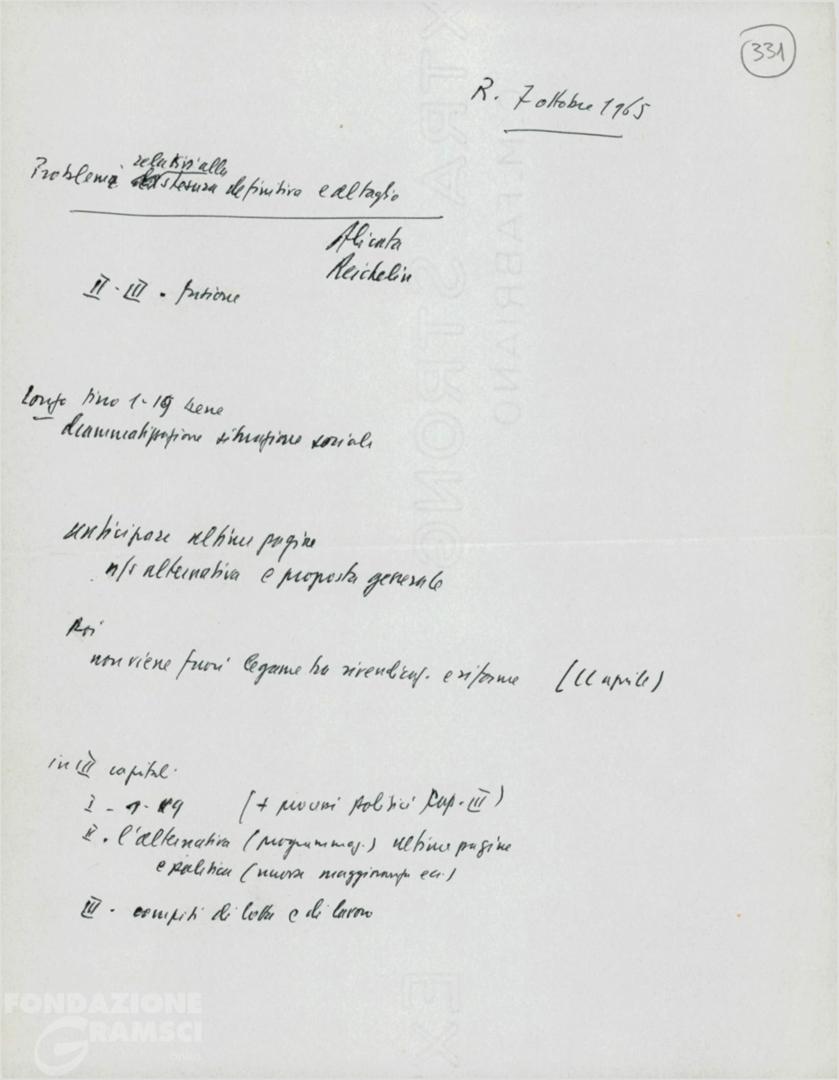 331
R. 7 ottobre 1965
relativi alla
Problemi stesura definitiva e al taglio
Alicata
Reichlin
II - III - fusione
Longo fino 1-19 bene
drammatizzazione situazione sociale
anticipare ultime pagine
n/s alternativa e proposta generale
Poi
non viene fuori legame tra rivendicaz. e riforme (
in III capitoli
I - 1 - 19 (+ politici cap. III)
II - l'alternativa (programmaz.) ultime pagine
e politica (nuova maggioranza ecc.)
III - compiti di lotta e di lavoro
EXTRA STRONG
FABRIANO
EX
FONDAZIONE
GRAMSCI
onlus